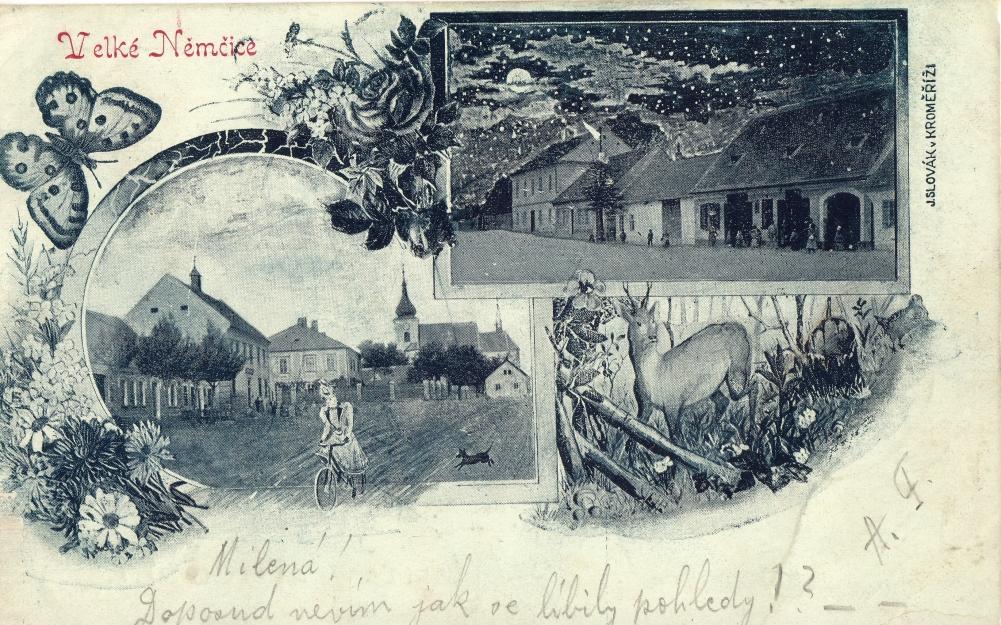 Velké Němčice
J. SLOVÁK v KROMĚŘÍŽI
A. F.
Milená!
Doposud nevím jak se líbily pohledy!? — —